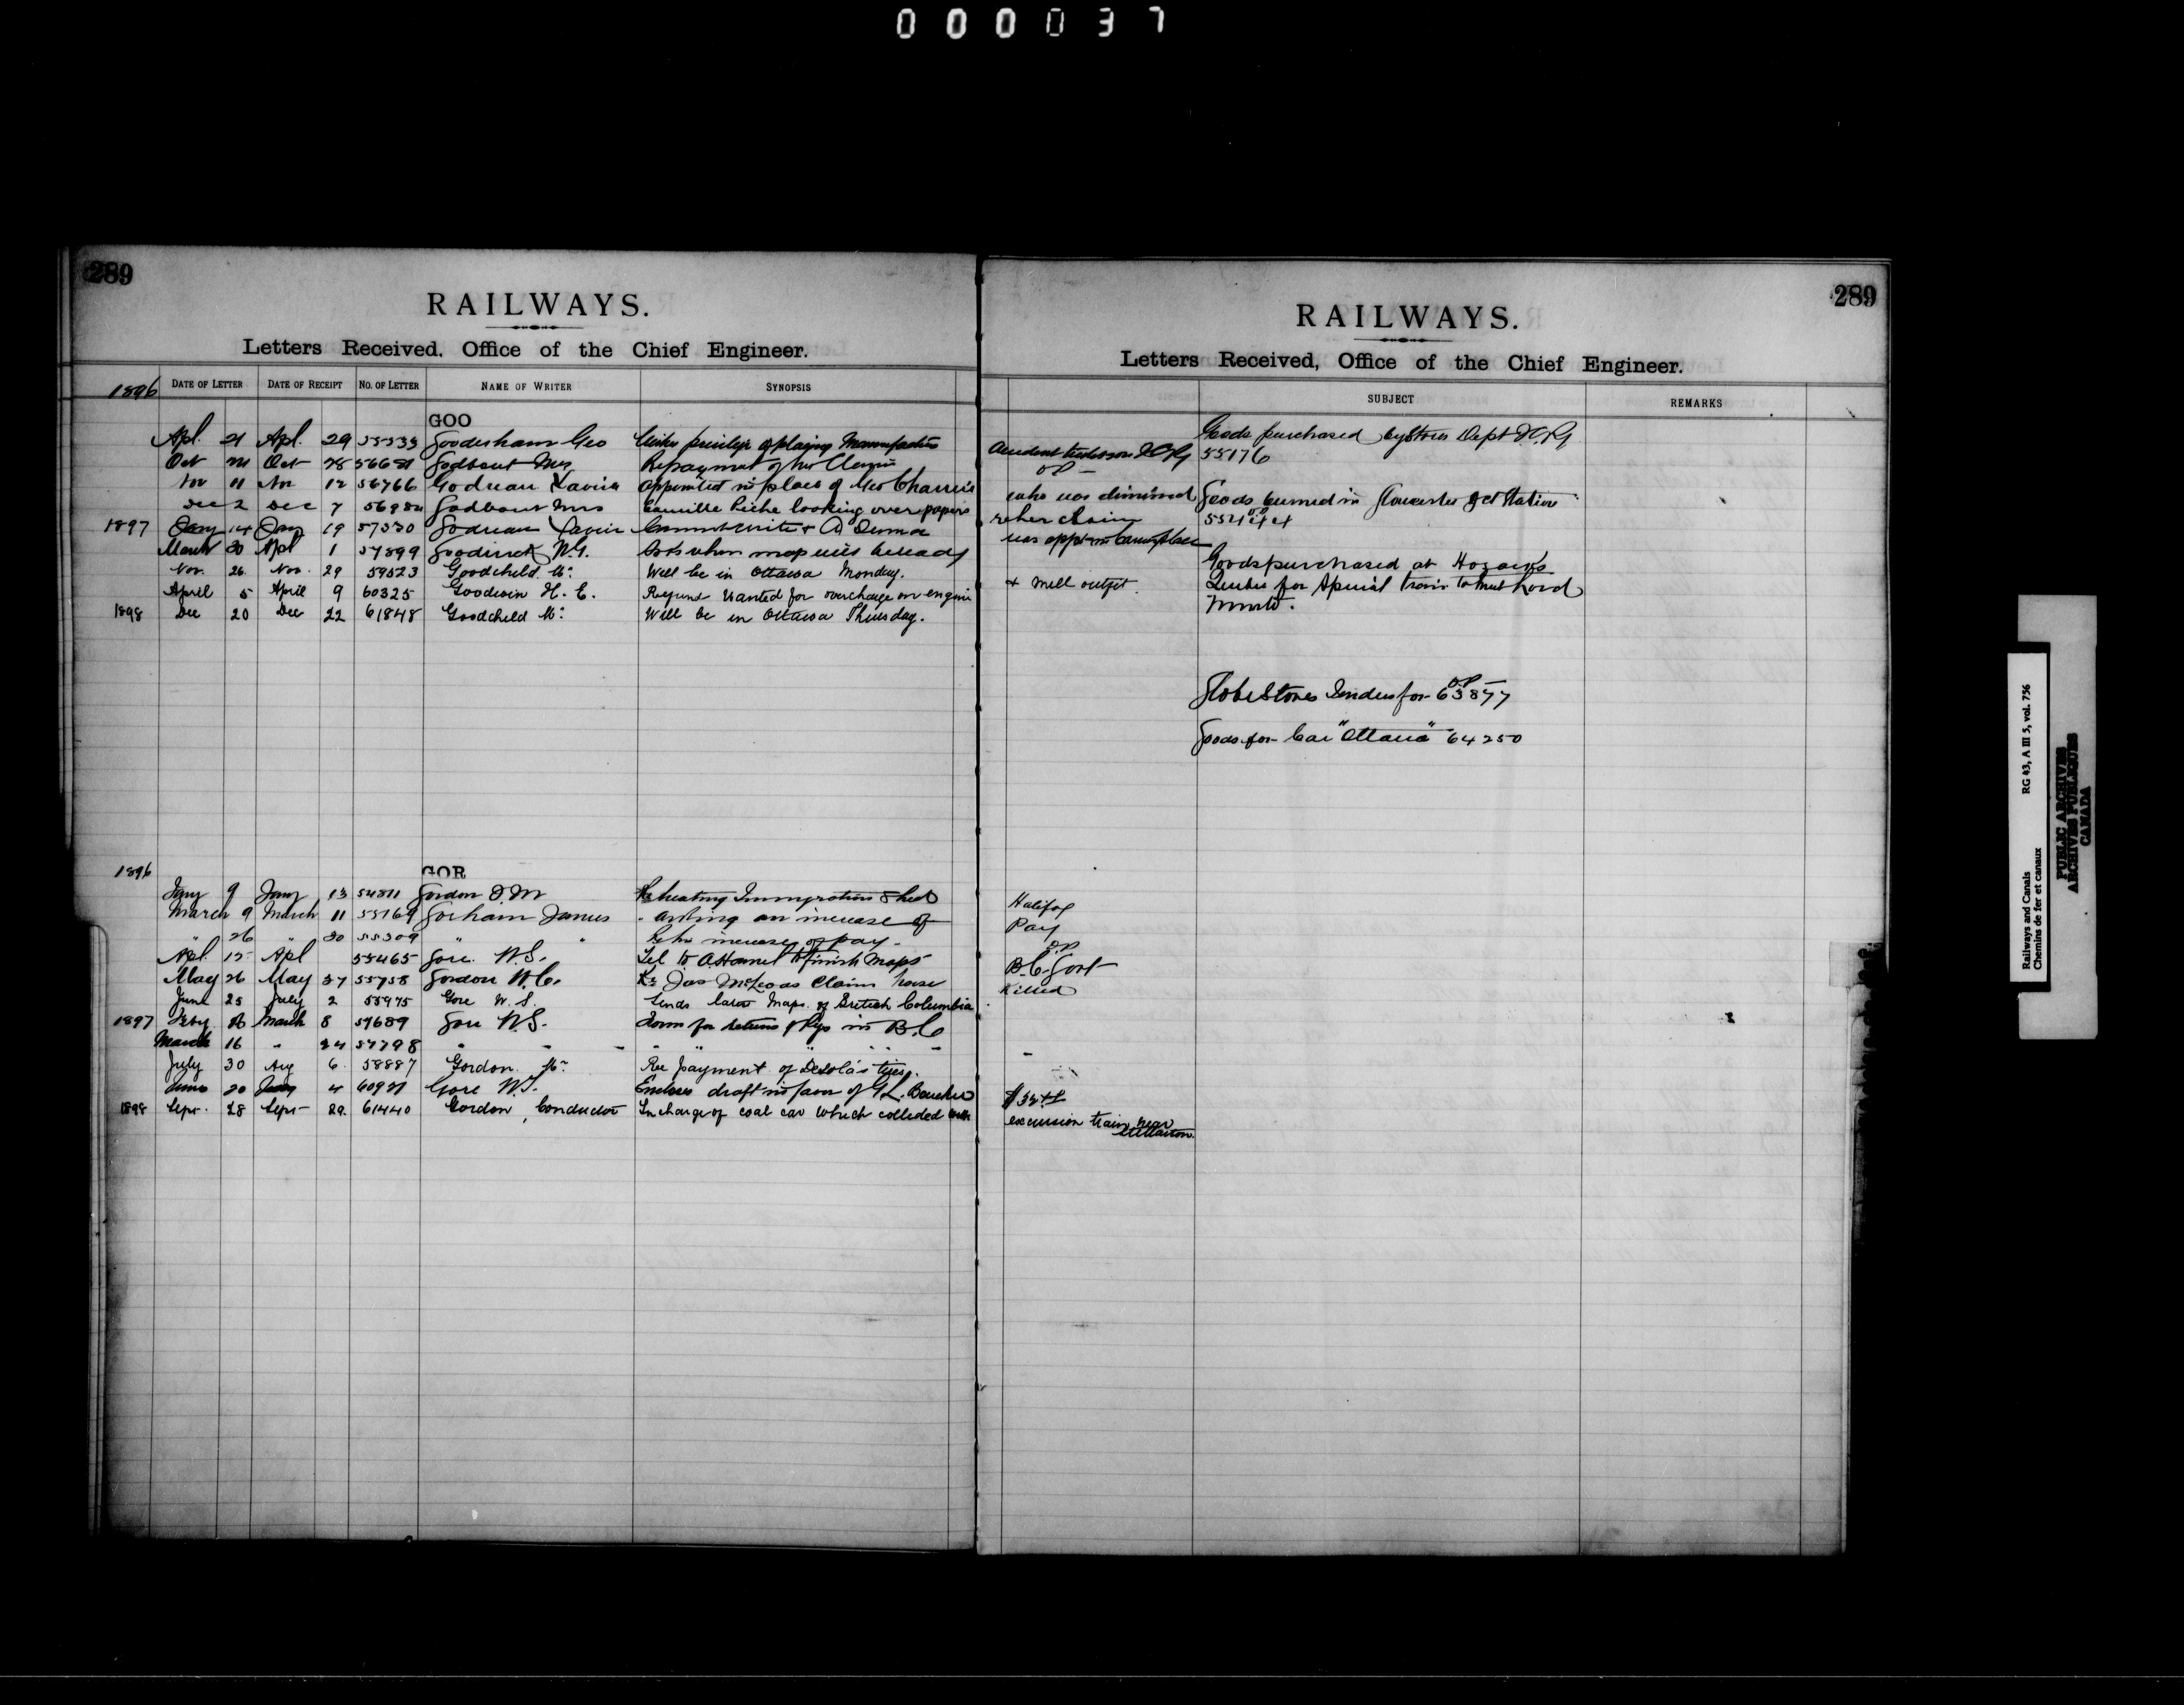 000037
289
RAILWAYS.
Letters Received, Office of the Chief Engineer.
1896 DATE OF LETTER DATE OF RECEIPT NO. OF LETTER NAME OF WRITER SYNOPSIS
GOO
Apl. 21 Apl. 29 55539 Gooderham Geo privilege of playing
Oct Oct 28 Godbout Mrs Repayment of her Claim
Nov 11 Nov 12 56766 Godreau Xavier Appointed in place of Geo Charrois
Dec 2 Dec 7 Godbout Mrs Camille Riche looking over papers
1897 Jany 14 Jany 19 57330 Godreau Xavier Cannot write &
March 30 Apl 1 57899 W.G. Asks when map will be ready
Nov. 26. Nov. 29 59523 Goodchild Mr. Will be in Ottawa Monday.
April 5 April 9 60325 Goodwin H. C. Refund Wanted for overcharge on engine
1898 Dec 20 Dec 22 61848 Goodchild Mr. Will be in Ottawa Thursday.
1896
GOR
Jany 9 Jany 13 54811 Gordon D.M Re heating Immigration Shed
March 9 March 11 55169 Gorham James - Asking an increase of
" 26 30 55309 " " Re his increase of pay-
Apl. 12 Apl 55465 Gore W.S. Tel to A. Hamel to finish Maps
May 26 May 27 55758 Gordon W.C. Re Jas McLeods Claim horse
June 25 July 2 55975 Gore W.S. Sends latest Maps of British Columbia
1897 Feby March 8 57689 Gore W.S. Form for returns of Rys in B.C
March 16 " 24 57798 " - - " " -
July 30 Aug 6 58887 Gordon Mr. Re payment of DeSola's tires.
20 4 Gore W.S. Encloses draft in favor of G.L. Boucher
1898 Sept. 28 Sept 29. 61440 Gordon, Conductor In charge of coal car which collided with
289
RAILWAYS.
Letters Received, Office of the Chief Engineer.
SUBJECT REMARKS
Goods purchased by Stores Dept I.C.Ry
55176
OP -
who was dismissed Goods burned in Gloucester Jct Station
re her claim
was appt in place
Goods purchased at
& Mill outfit. for Special train to meet Lord
Minto.
Globe Stones Tenders for 63877
OP
Goods for Car "Ottawa" 64250
Halifax
Pay
OP
B.C. Govt
Killed
-
excursion train near
Stellarton.
Railways and Canals RG 43, A III 5, vol. 756
Chemins de fer et canaux
PUBLIC ARCHIVES
ARCHIVES PUBLIQUES
CANADA